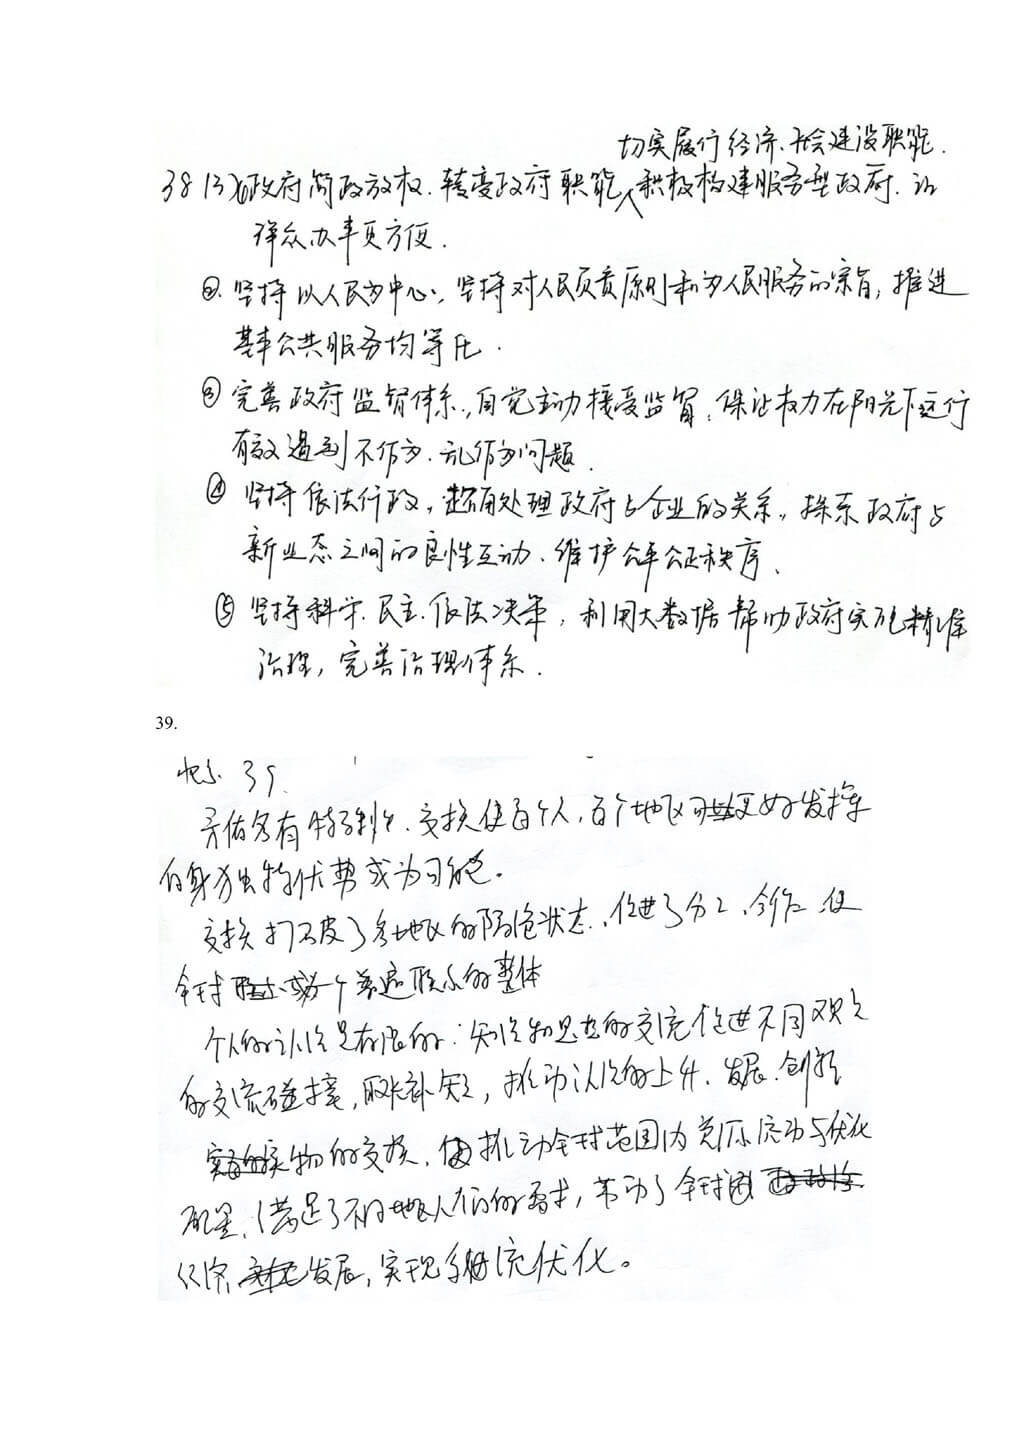 切实履行经济、社会建设职能.
38 (3)①政府简政放权.转变政府职能 积极构建服务型政府.让
群众办事更方便.
②.坚持以人民为中心,坚持对人民负责原则和为人民服务的宗旨,推进
基本公共服务均等化.
③完善政府监督体系,自觉主动接受监督,保证权力在阳光下运行
有效遏制不作为.乱作为问题.
④ 坚持依法行政,处理政府与企业的关系,探索政府与
新业态之间的良性互动、维护公平公正秩序、
⑤ 坚持科学.民主.依法决策,利用大数据帮助政府实施精准
治理,完善治理体系.
39.
39.
各有特,交换使每个人,每个地区更好发挥
自身独特优势成为可能。
交换打破了各地区的隔绝状态,促进了分工、合作 使
全球 成为一个普遍联系的整体
个人的认识是有限的:知识和思想的交流促进不同观点
的交流碰撞,取长补短,推动认识的上升、发展.创新
实物的交换,推动全球范围内资源流动与优化
配置,满足了不同地区人们的需求,带动了全球
经济 发展,实现 优化。